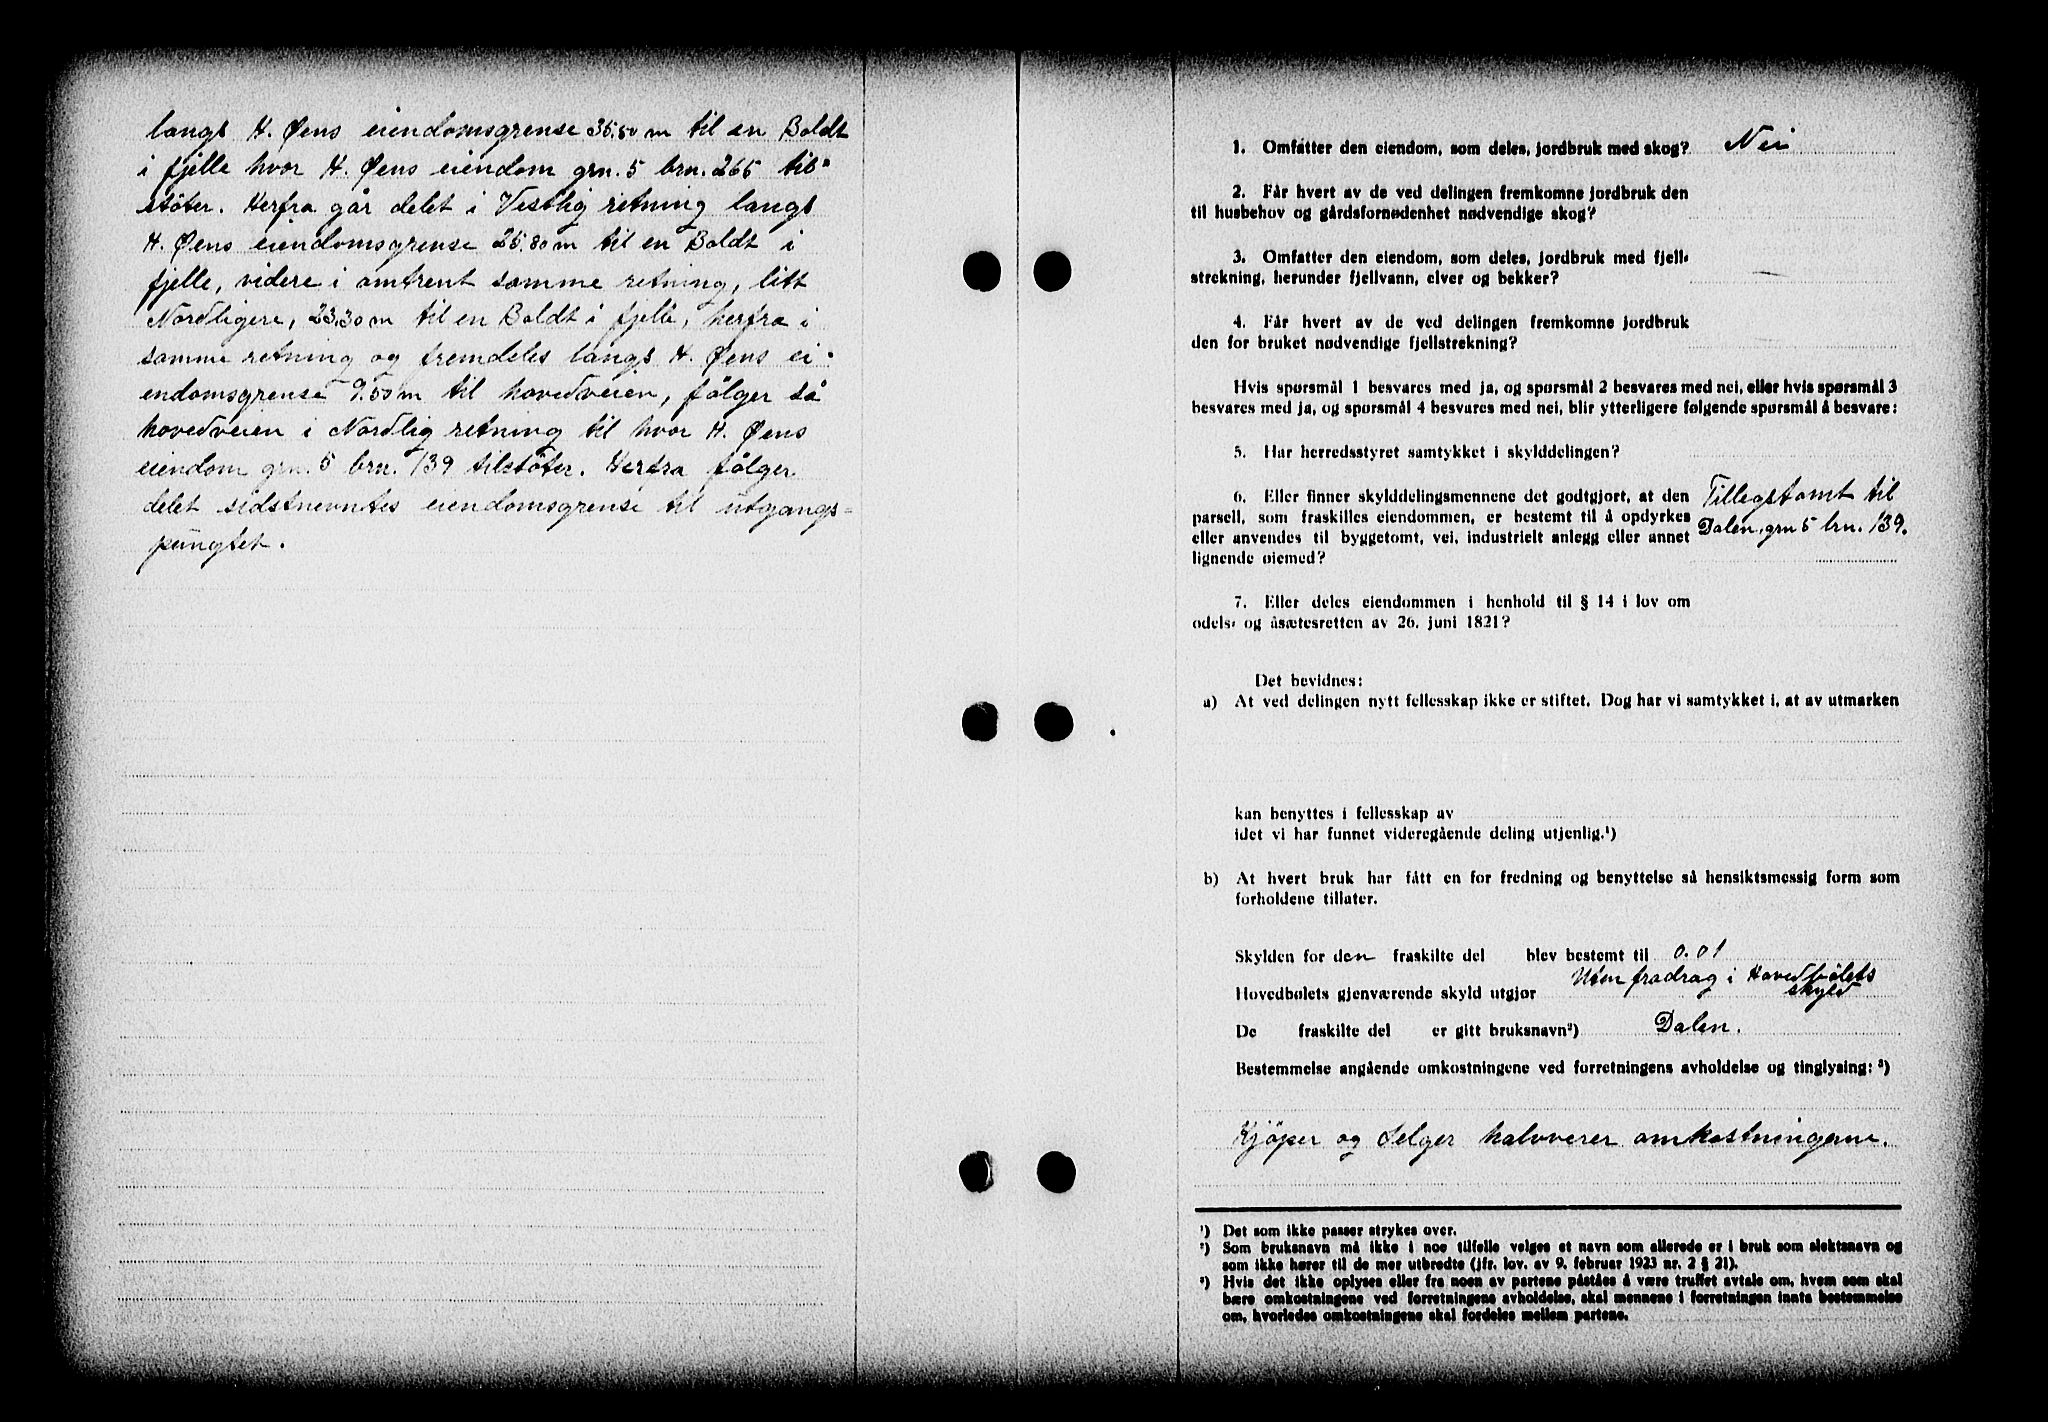 langs H. Øens eiendomsgrense 35.50 m til en Boldt
i fjelle hvor H. Øens eiendom grn. 5 brn. 265 til-
støter. Herfra går delet i Vestlig retning langs
H. Øens eiendomsgrense 25.80 m til en Boldt i
fjelle, videre i omtrent samme retning, litt
Nordligere, 23.30 m til en Boldt i fjelle, herfra i
samme retning og fremdeles langs H. Øens ei-
endomsgrense 9.50 m til hovedveien, følger så
hovedveien i Nordlig retning til hvor H. Øens
eiendom grn. 5 brn. 139 tilstøter. Herfra følger
delet sidstnevntes eiendomsgrense til utgangs=
pungtet.
1. Omfatter den eiendom, som deles, jordbruk med skog? Nei
2. Får hvert av de ved delingen fremkomne jordbruk den
til husbehov og gårdsfornødenhet nødvendige skog?
3. Omfatter den eiendom, som deles, jordbruk med fjell-
strekning, herunder fjellvann, elver og bekker? —
4. Får hvert av de ved delingen fremkomne jordbruk
den for bruket nødvendige fjellstrekning?
Hvis spørsmål 1 besvares med ja, og spørsmål 2 besvares med nei, eller hvis spørsmål 3
besvares med ja, og spørsmål 4 besvares med nei, blir ytterligere følgende spørsmål å besvare:
5. Har herredsstyret samtykket i skylddelingen?
6. Eller finner skylddelingsmennene det godtgjort, at den Tillegstomt til
parsell, som fraskilles eiendommen, er bestemt til å opdyrkes Dalen, grn 5 brn. 139.
eller anvendes til byggetomt, vei, industrielt anlegg eller annet
lignende øiemed?
7. Eller deles eiendommen i henhold til § 14 i lov om
odels- og åsætesretten av 26. juni 1821?
Det bevidnes:
a) At ved delingen nytt fellesskap ikke er stiftet. Dog har vi samtykket i, at av utmarken
kan benyttes i fellesskap av
idet vi har funnet videregående deling utjenlig.¹)
b) At hvert bruk har fått en for fredning og benyttelse så hensiktsmessig form som
forholdene tillater.
Skylden for den fraskilte del blev bestemt til 0.01
Uten fradrag i Hovedbølets
Hovedbølets gjenværende skyld utgjør skyld
De fraskilte del er gitt bruksnavn²) Dalen.
Bestemmelse angående omkostningene ved forretningens avholdelse og tinglysing: ³)
Kjøper og Selger halvverer omkostningerne.
¹) Det som ikke passer strykes over.
²) Som bruksnavn må ikke i noe tilfelle velges et navn som allerede er i bruk som slektsnavn og
som ikke hører til de mer utbredte (jfr. lov. av 9. februar 1923 nr. 2 § 21).
³) Hvis det ikke oplyses eller fra noen av partene påståes å være truffet avtale om, hvem som skal
bære omkostningene ved forretningens avholdelse, skal mennene i forretningen innta bestemmelse
om, hvorledes omkostningene skal fordeles mellem partene.